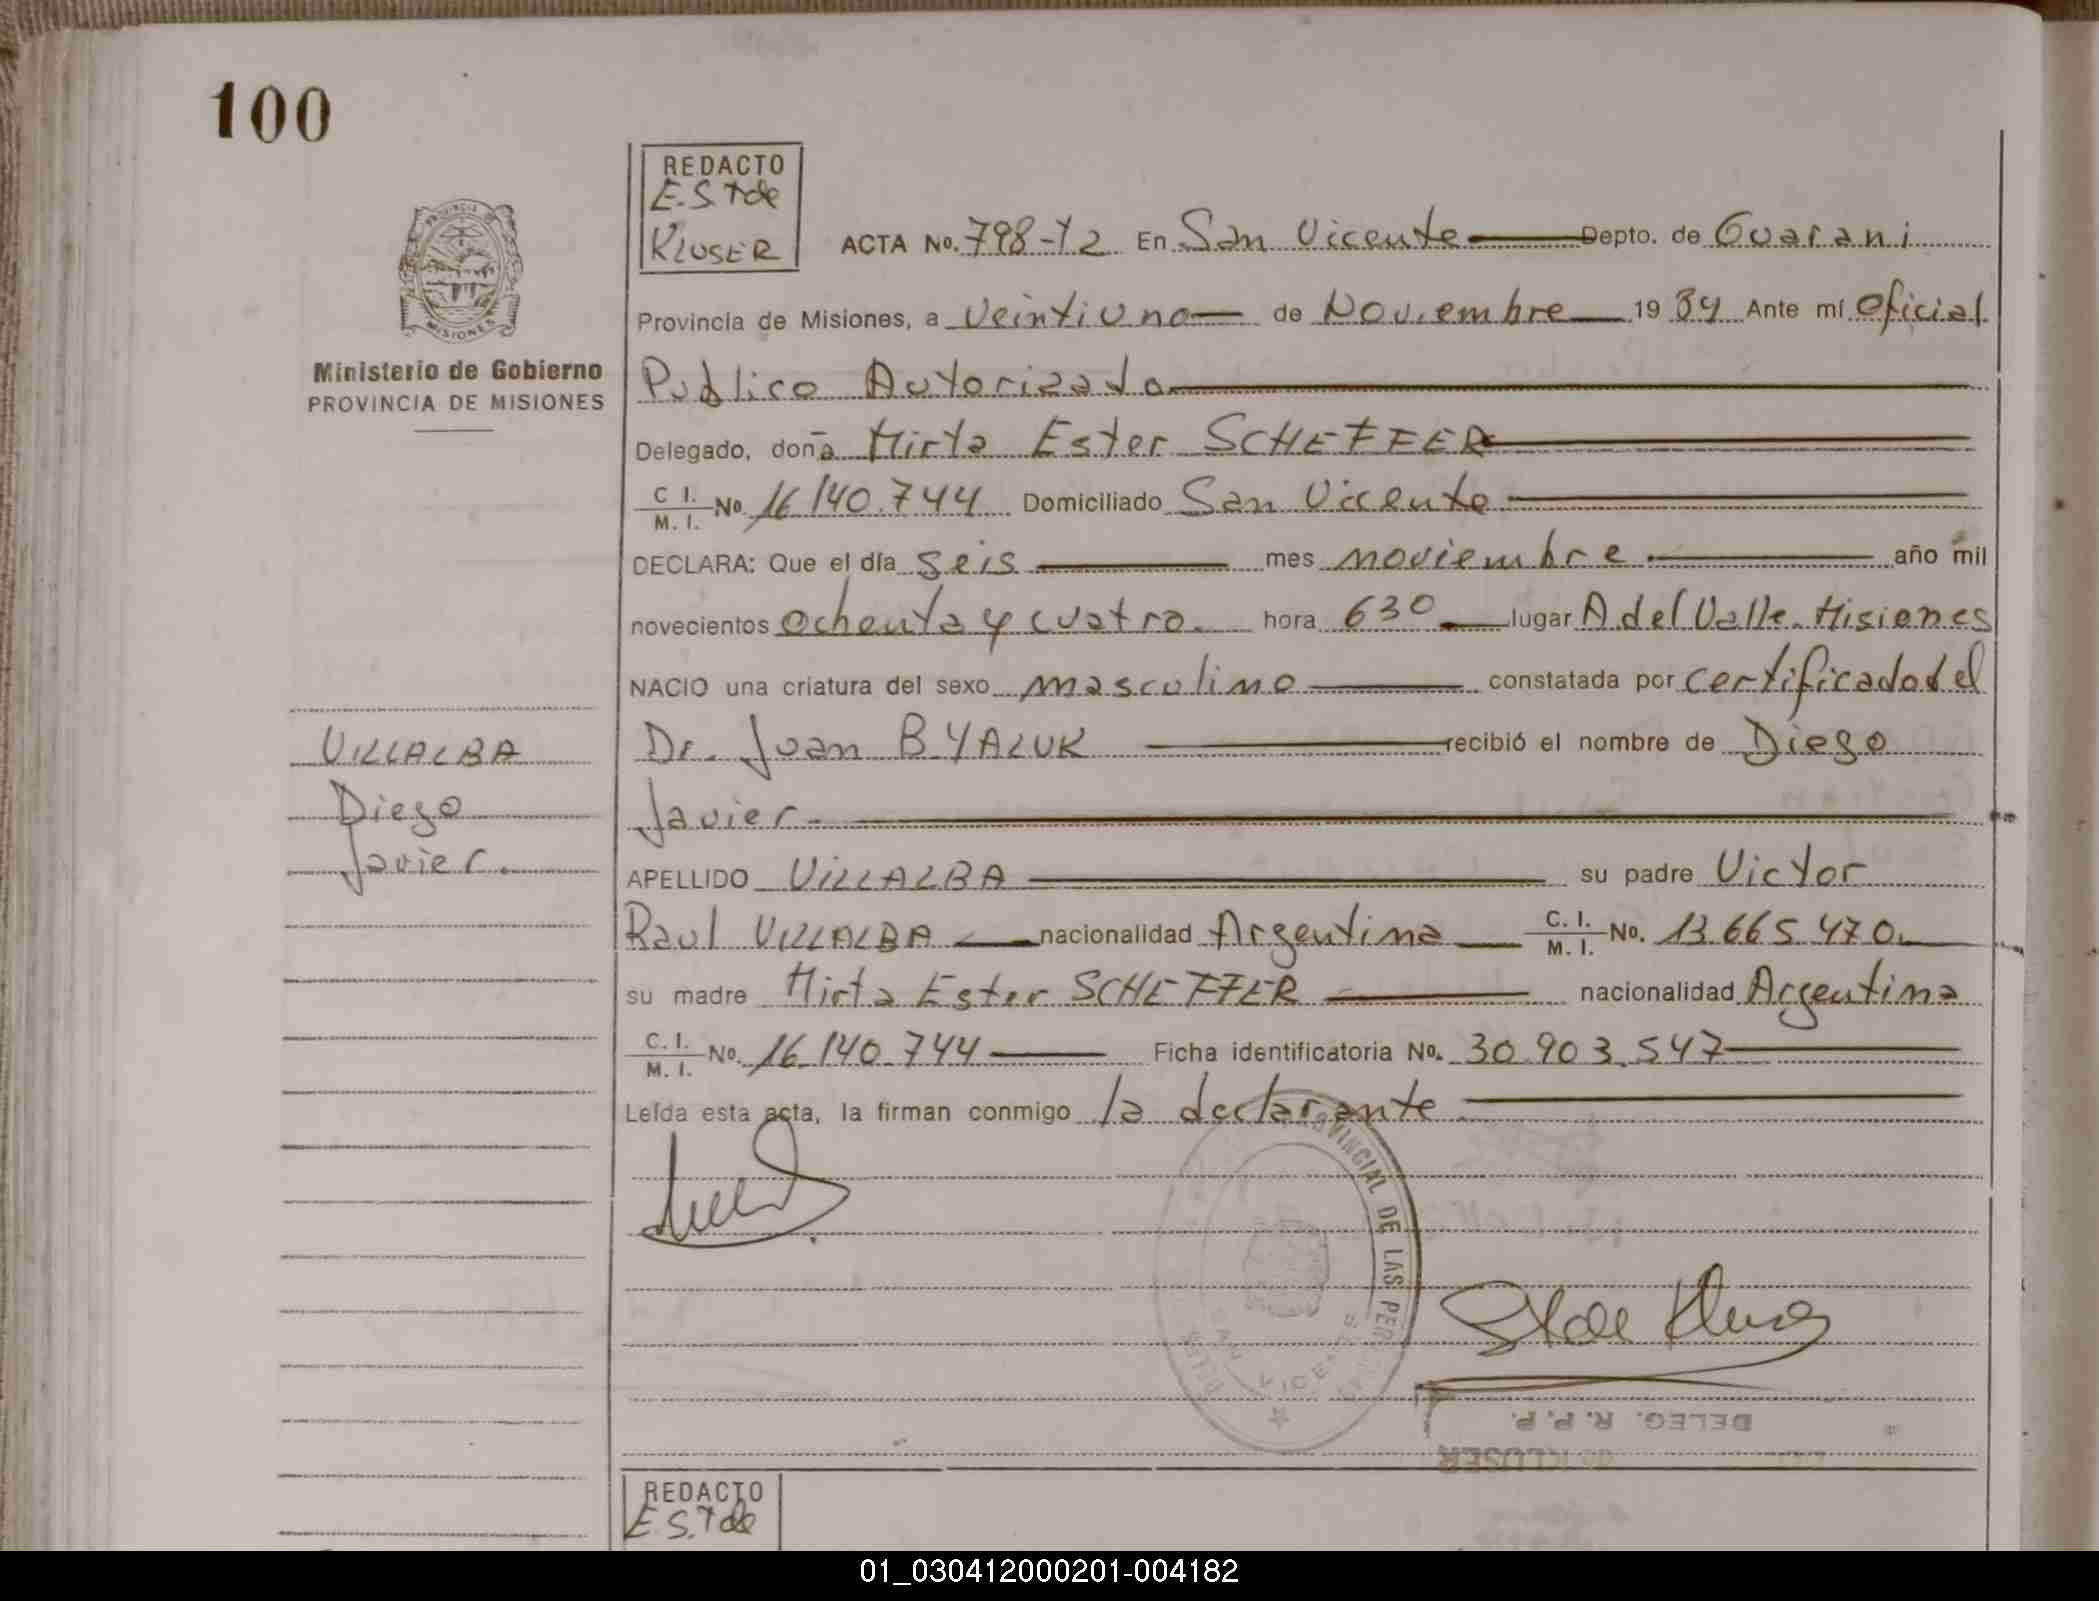 100
REDACTO
E.S.T de
KLUSER
ACTA No. 798-T2 En San Vicente Depto. de Guarani
Provincia de Misiones, a veintiuno de Noviembre 1984 Ante mí Oficial
Ministerio de Gobierno
PROVINCIA DE MISIONES
Publico Autorizado
Delegado, doña Mirta Ester SCHEFFER
C I.
M. I. No. 16.140.744 Domiciliado San Vicente
DECLARA: Que el día seis mes noviembre año mil
novecientos ochenta y cuatro. hora 630 lugar A del Valle. Misiones
NACIO una criatura del sexo masculino constatada por certificado del
Dr. Juan BYALUK recibió el nombre de Diego
Javier.
VILLALBA
Diego
Javier.
APELLIDO VILLALBA su padre Victor
Raul VILLALBA nacionalidad Argentina C. I.
M. I. No. 13.665.470.
su madre Mirta Ester SCHEFFER nacionalidad Argentina
C. I.
M. I. No. 16.140.744 Ficha identificatoria No. 30.903.547
Leída esta acta, la firman conmigo la declarante
PROVINCIAL DE LAS PER
SAN VICENTE
DELEG. R. P. P.
de KLUSER
REDACTO
E.S.T de
01_030412000201-004182